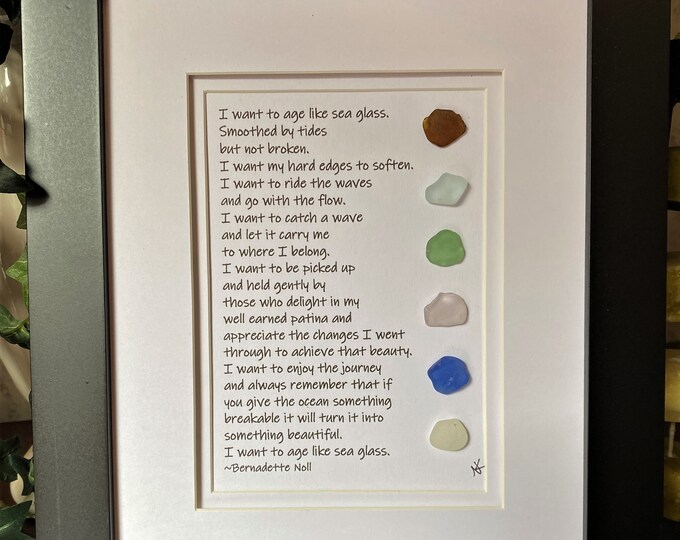 I want to age like sea glass.
Smoothed by tides
but not broken.
I want my hard edges to soften.
I want to ride the waves
and go with the flow.
I want to catch a wave
and let it carry me
to where I belong.
I want to be picked up
and held gently by
those who delight in my
well earned patina and
appreciate the changes I went
through to achieve that beauty.
I want to enjoy the journey
and always remember that if
you give the ocean something
breakable it will turn it into
something beautiful.
I want to age like sea glass.
~Bernadette Noll